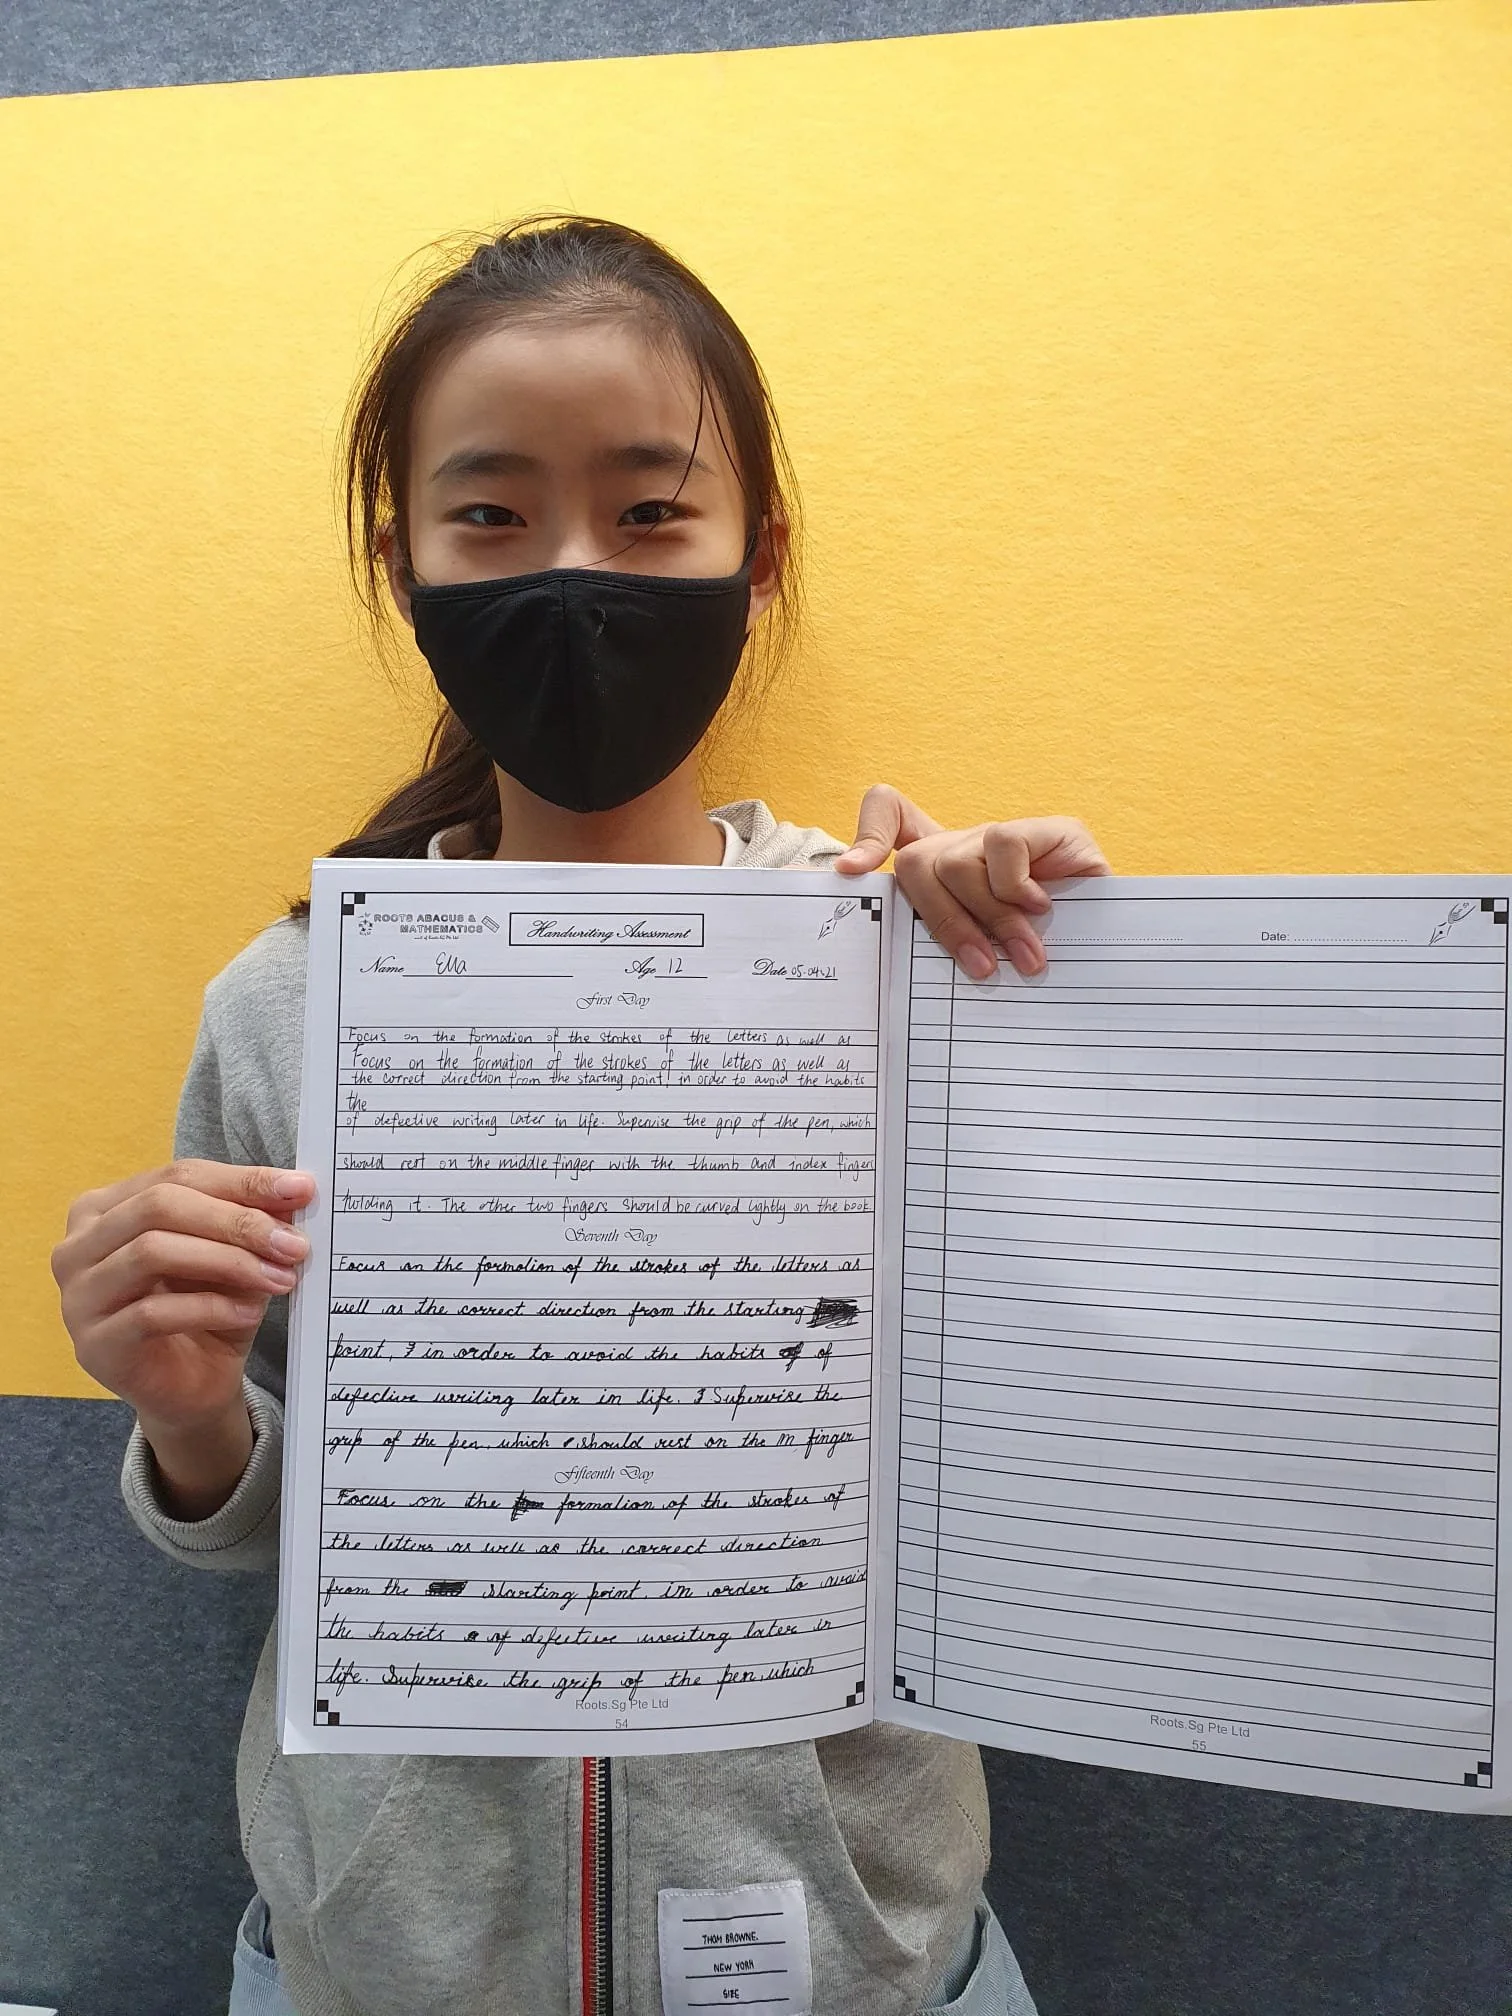 ROOTS ABACUS &
MATHEMATICS
Handwriting Assessment
Name Ella Age 12 Date 05.04.21
First Day
Focus on the formation of the strokes of the letters as well as
Focus on the formation of the strokes of the letters as well as
the correct direction from the starting point, in order to avoid the habits
the
of defective writing later in life. Supervise the grip of the pen, which
should rest on the middle finger with the thumb and index fingers
holding it. The other two fingers should be curved lightly on the book.
Seventh Day
Focus on the formolion of the strokes of the letters as
well as the correct direction from the starting
point, in order to avoid the habits of of
defective writing later in life. Supervise the
grip of the pen, which should rest on the m finger
Fifteenth Day
Focus on the formalion of the strokes of
the letters as well as the correct direction
from the starting point, in order to avoid
the habits of defective writing later in
life. Supervise the grip of the pen, which
Roots.Sg Pte Ltd
54
Date:
Roots.Sg Pte Ltd
55
THOM BROWNE.
NEW YORK
SIZE